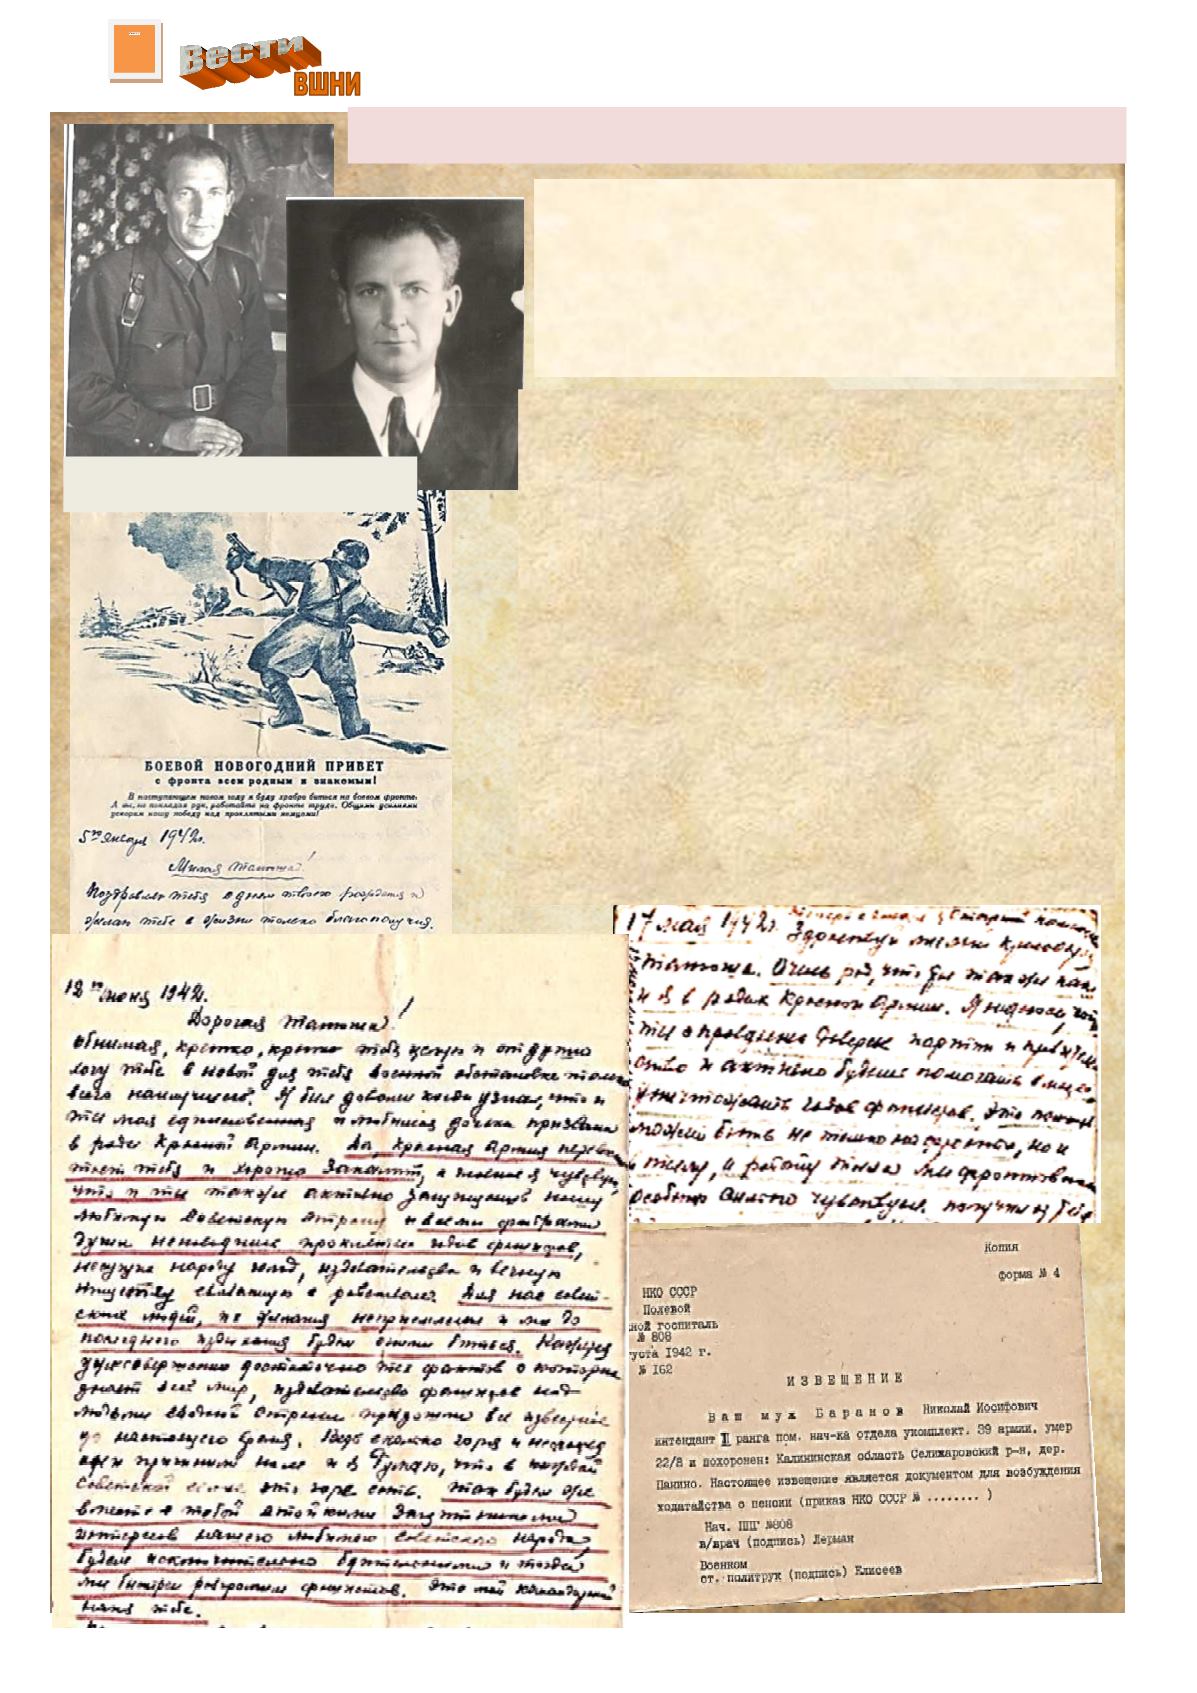 Вести
ВШНИ
БОЕВОЙ НОВОГОДНИЙ ПРИВЕТ
с фронта всем родным и знакомым!
В наступающем новом году я буду храбро биться на боевом фронте.
А ты, не покладая рук, работайте на фронте труда. Общими усилиями
ускорим нашу победу над проклятыми немцами!
5го января 1942г.
Милая Танюша!
Поздравляю тебя с днем твоего рождения и
желаю тебе в жизни только благополучия.
17 мая 1942г.
Здравствуй
Танюша. Очень рад, что ты также как
и я в рядах Красной Армии. Я надеюсь, что
ты оправдаешь доверие партии и правитель
ство и активно будешь помогать в
уничтожать гадов фашистов. Это
может быть не только на фронте, но и
в тылу, и работу тыла мы фронтовики
особенно сильно чувствуем. получил
12го июня 1942г.
Дорогая Танюша!
обнимаю, крепко, крепко тебя целую и от души
желаю тебе в новой для тебя военной обстановке только
всего наилучшего. Я был доволен когда узнал, что и
ты моя единственная и любимая дочка призвана
в ряды Красной Армии. Да, Красная Армия
тебя и хорошо закалит, а главное я чувствую,
что и ты также активно защищаешь нашу
любимую Советскую страну и всеми фибрами
души ненавидишь проклятых гадов фашистов,
несущих народу голод, издевательства и вечную
нищету связанную с рабством. Для нас совет-
ских людей, их желания неприемлемы и мы до
последнего издыхания будем с ними биться. Кажется
уже совершенно достаточно тех фактов о которых
знает весь мир, издевательство фашистов над
людьми нашей страны
до настоящего времени. Ведь сколько горя и несчастья
они причинили нам и я думаю, что в каждой
Советской семье это горе есть. Так будем же
вместе с тобой стойкими защитниками
интересов нашего любимого советского народа,
будем исключительно бдительными и тогда
мы быстрее разгромим фашистов. Это мой
наказ тебе.
Копия
форма № 4
НКО СССР
Полевой
ной госпиталь
№ 808
уста 1942 г.
№ 162
ИЗВЕЩЕНИЕ
Ваш муж Баранов Николай Иосифович
интендант II ранга пом. нач-ка отдела укомплект. 39 армии, умер
22/8 и похоронен: Калининская область Селижаровский р-н, дер.
Панино. Настоящее извещение является документом для возбуждения
ходатайства о пенсии (приказ НКО СССР № ........ )
Нач. ППГ №808
в/врач (подпись) Лерман
Военком
ст. политрук (подпись) Елисеев